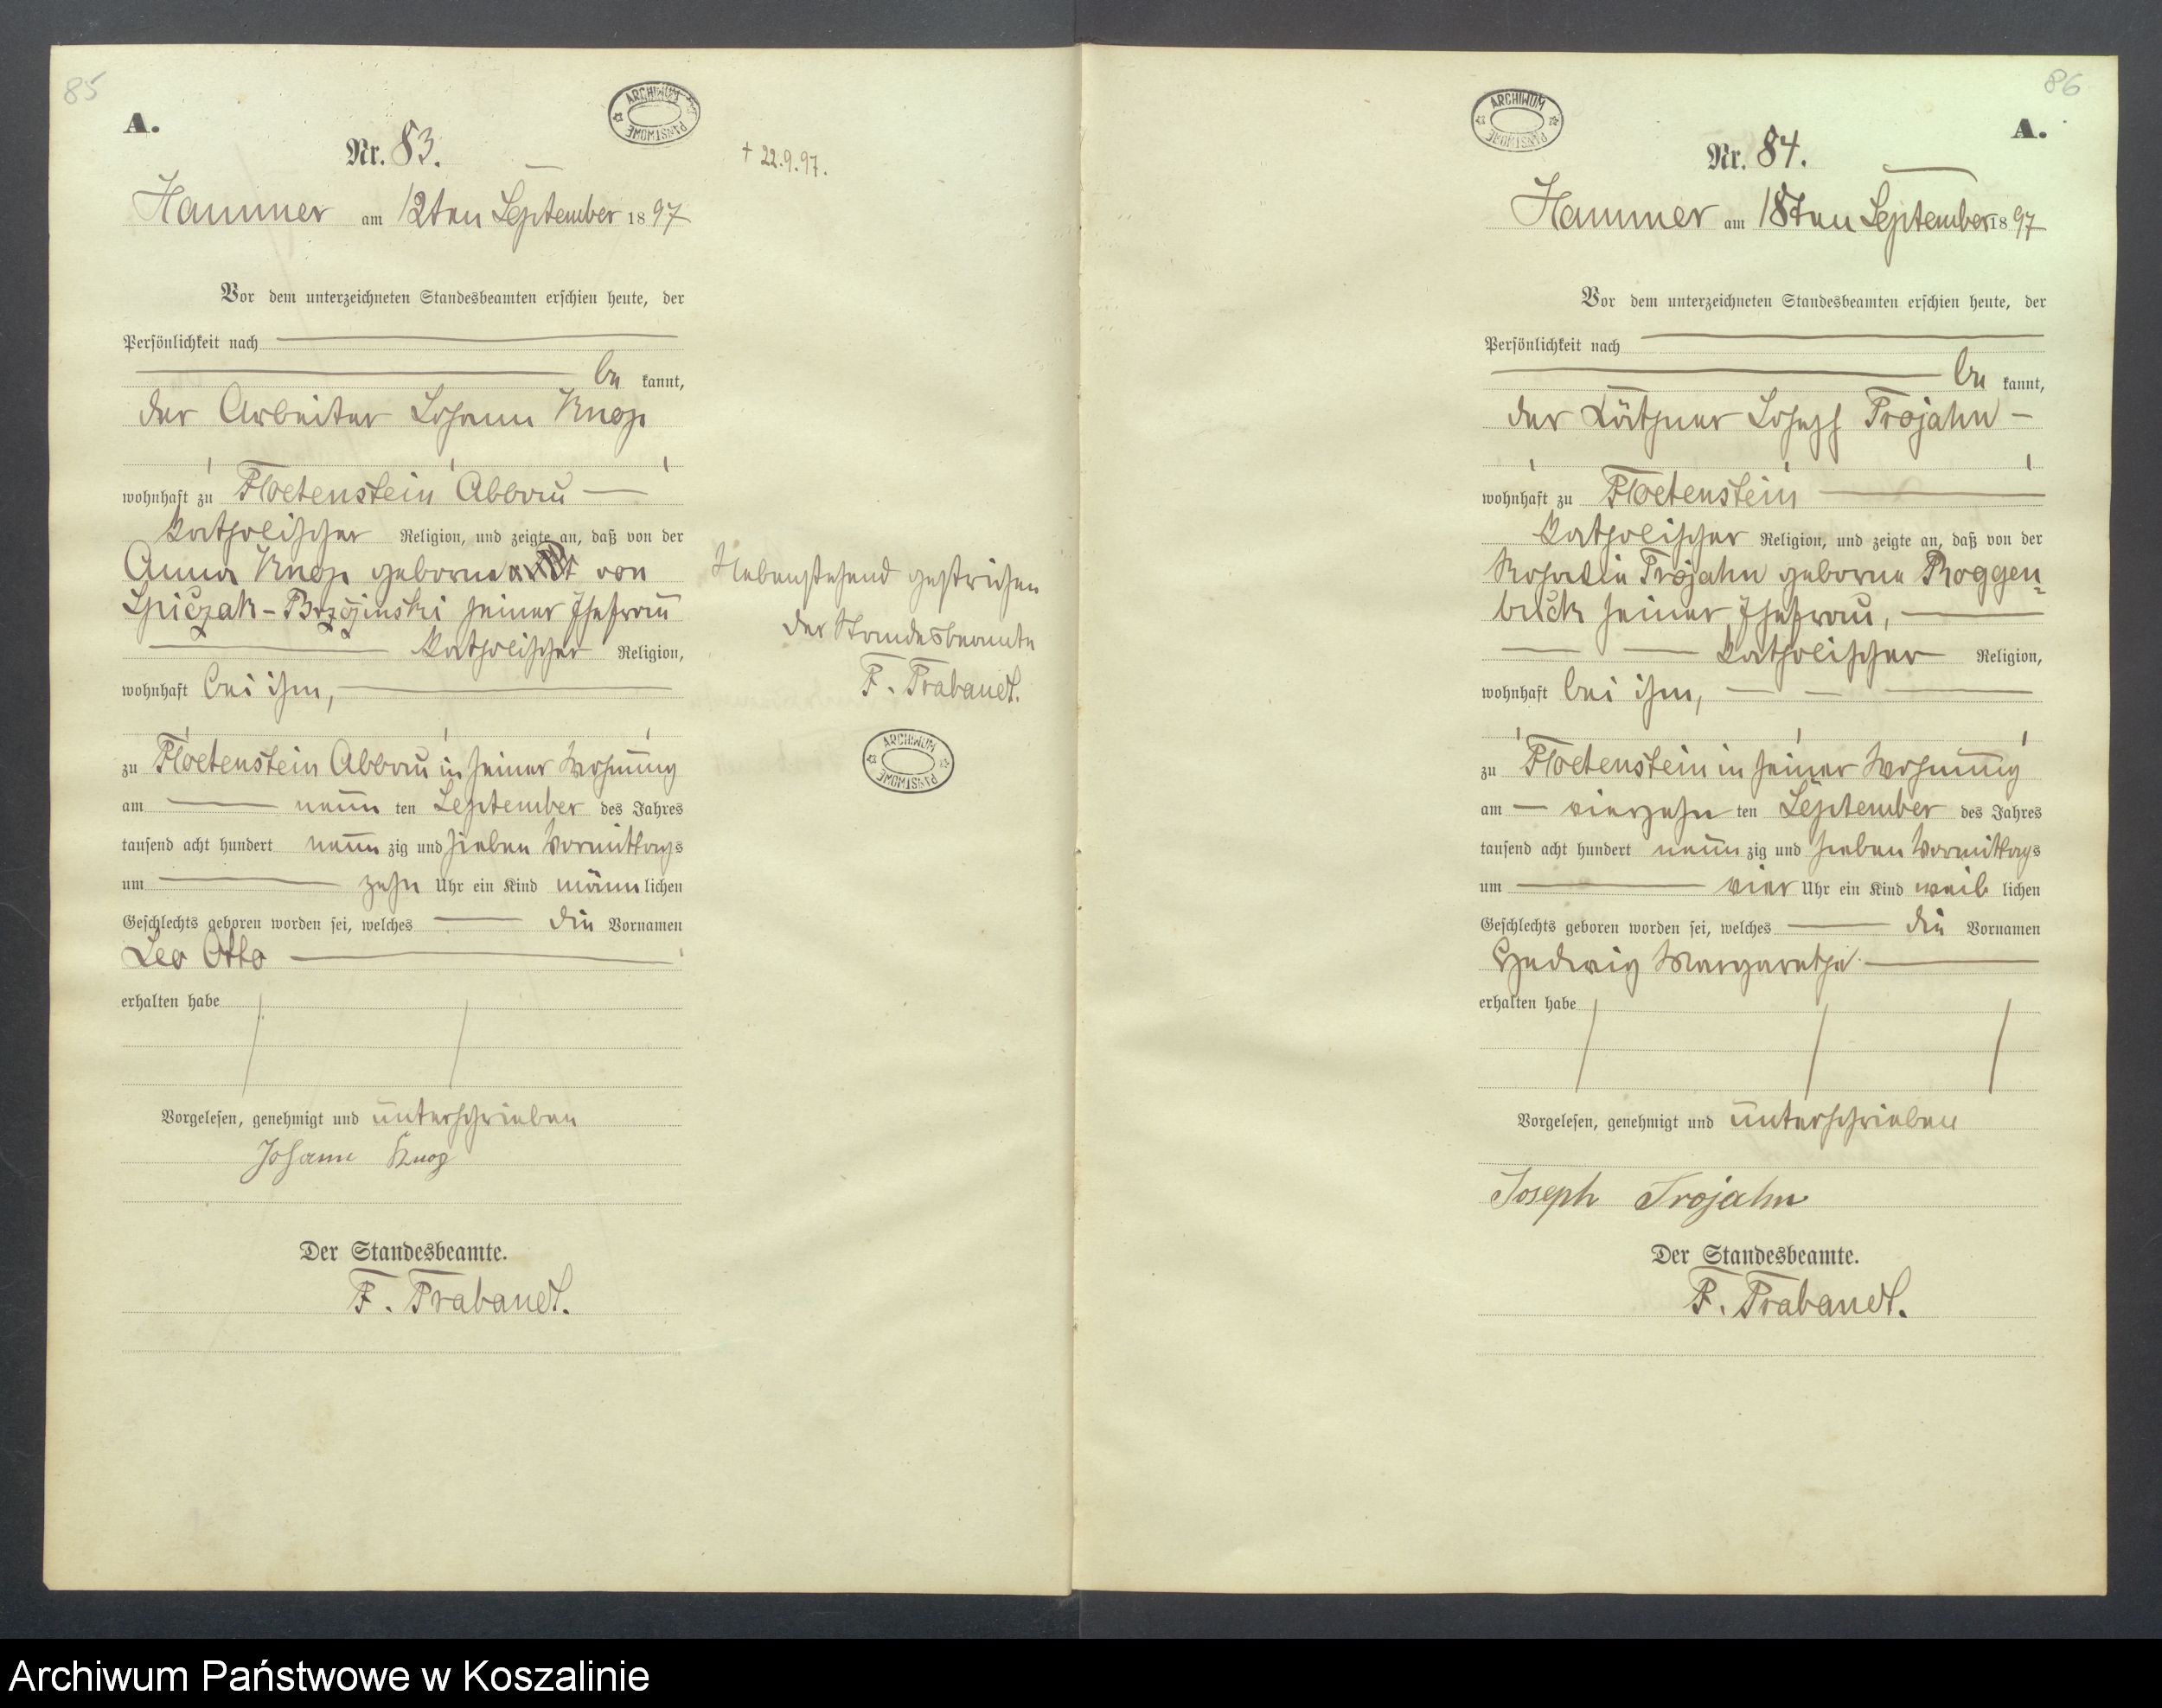 85
A.
ARCHIWUM PAŃSTWOWE
Nr. 83.
† 22.9.97.
Hammer am 12ten September 1897
Vor dem unterzeichneten Standesbeamten erschien heute, der
Persönlichkeit nach
be kannt,
der Arbeiter Johann Knop
wohnhaft zu Floetenstein Abbau
katholischer Religion, und zeigte an, daß von der
Anna Knop geborene von
Spiczak-Brzezinski seiner Ehefrau
katholischer Religion,
wohnhaft bei ihm,
zu Floetenstein Abbau in seiner Wohnung
am neun ten September des Jahres
tausend acht hundert neun zig und sieben Vormittags
um zehn Uhr ein Kind männ lichen
Geschlechts geboren worden sei, welches die Vornamen
Leo Otto
erhalten habe
Vorgelesen, genehmigt und unterschrieben
Johann Knop
Der Standesbeamte.
F. Trabandt.
Nebenstehend gestrichen
der Standesbeamte
F. Trabandt.
ARCHIWUM PAŃSTWOWE
86
A.
ARCHIWUM PAŃSTWOWE
Nr. 84.
Hammer am 18ten September 1897
Vor dem unterzeichneten Standesbeamten erschien heute, der
Persönlichkeit nach
be kannt,
der Käthner Joseph Trojahn
wohnhaft zu Floetenstein
katholischer Religion, und zeigte an, daß von der
Rosalie Trojahn geborne Roggen-
buck seiner Ehefrau,
katholischer Religion,
wohnhaft bei ihm,
zu Floetenstein in seiner Wohnung
am vierzehn ten September des Jahres
tausend acht hundert neun zig und sieben Vormittags
um vier Uhr ein Kind weib lichen
Geschlechts geboren worden sei, welches die Vornamen
Hedwig Margarethe
erhalten habe
Vorgelesen, genehmigt und unterschrieben
Joseph Trojahn
Der Standesbeamte.
F. Trabandt.
Archiwum Państwowe w Koszalinie